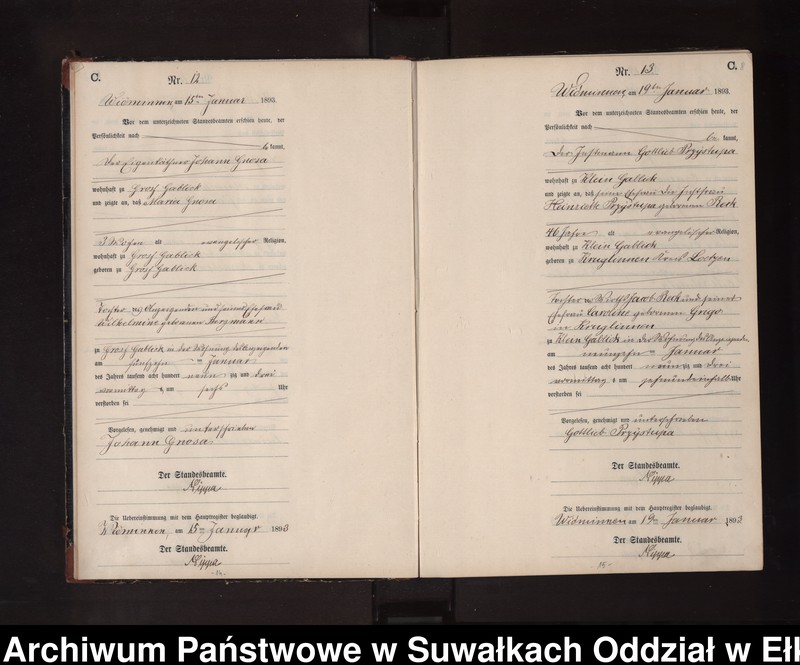 C.
Nr. 12
Widminnen, am 15ten Januar 1893.
Vor dem unterzeichneten Standesbeamten erschien heute, der
Persönlichkeit nach
be kannt,
der Eigenkäthner Johann Gnosa
wohnhaft zu Gross Gablick
und zeigte an, daß Maria Gnosa
3 Wochen alt evangelischer Religion,
wohnhaft zu Gross Gablick
geboren zu Gross Gablick
Tochter des Anzeigenden und seiner Ehefrau
Wilhelmine geborenen
zu Gross Gablick in der Wohnung des Anzeigenden
am fünfzehn ten Januar
des Jahres tausend acht hundert neun zig und drei
vormittag s um sechs Uhr
verstorben sei
Vorgelesen, genehmigt und unterschrieben
Johann Gnosa
Der Standesbeamte.
Nippa
Die Uebereinstimmung mit dem Hauptregister beglaubigt.
Widminnen, am 15ten Januar 1893
Der Standesbeamte.
Nippa
C.
Nr. 13
Widminnen, am 19ten Januar 1893.
Vor dem unterzeichneten Standesbeamten erschien heute, der
Persönlichkeit nach
be kannt,
der Instmann Gottlieb Przystupa
wohnhaft zu Klein Gablick
und zeigte an, daß seine Ehefrau die Instfrau
Heinriette Przystupa geborenen Rek
46 Jahre alt evangelischer Religion,
wohnhaft zu Klein Gablick
geboren zu Kruglinnen Kreis Loetzen
Tochter des Jacob Rek und seiner
Ehefrau Caroline geborenen Grigo
in Kruglinnen
zu Klein Gablick in der Wohnung des Anzeigenden
am neunzehn ten Januar
des Jahres tausend acht hundert neun zig und drei
vormittag s um Uhr
verstorben sei
Vorgelesen, genehmigt und unterschrieben
Gottlieb Przystupa
Der Standesbeamte.
Nippa
Die Uebereinstimmung mit dem Hauptregister beglaubigt.
Widminnen, am 19ten Januar 1893
Der Standesbeamte.
Nippa
Archiwum Państwowe w Suwałkach Oddział w Ełk